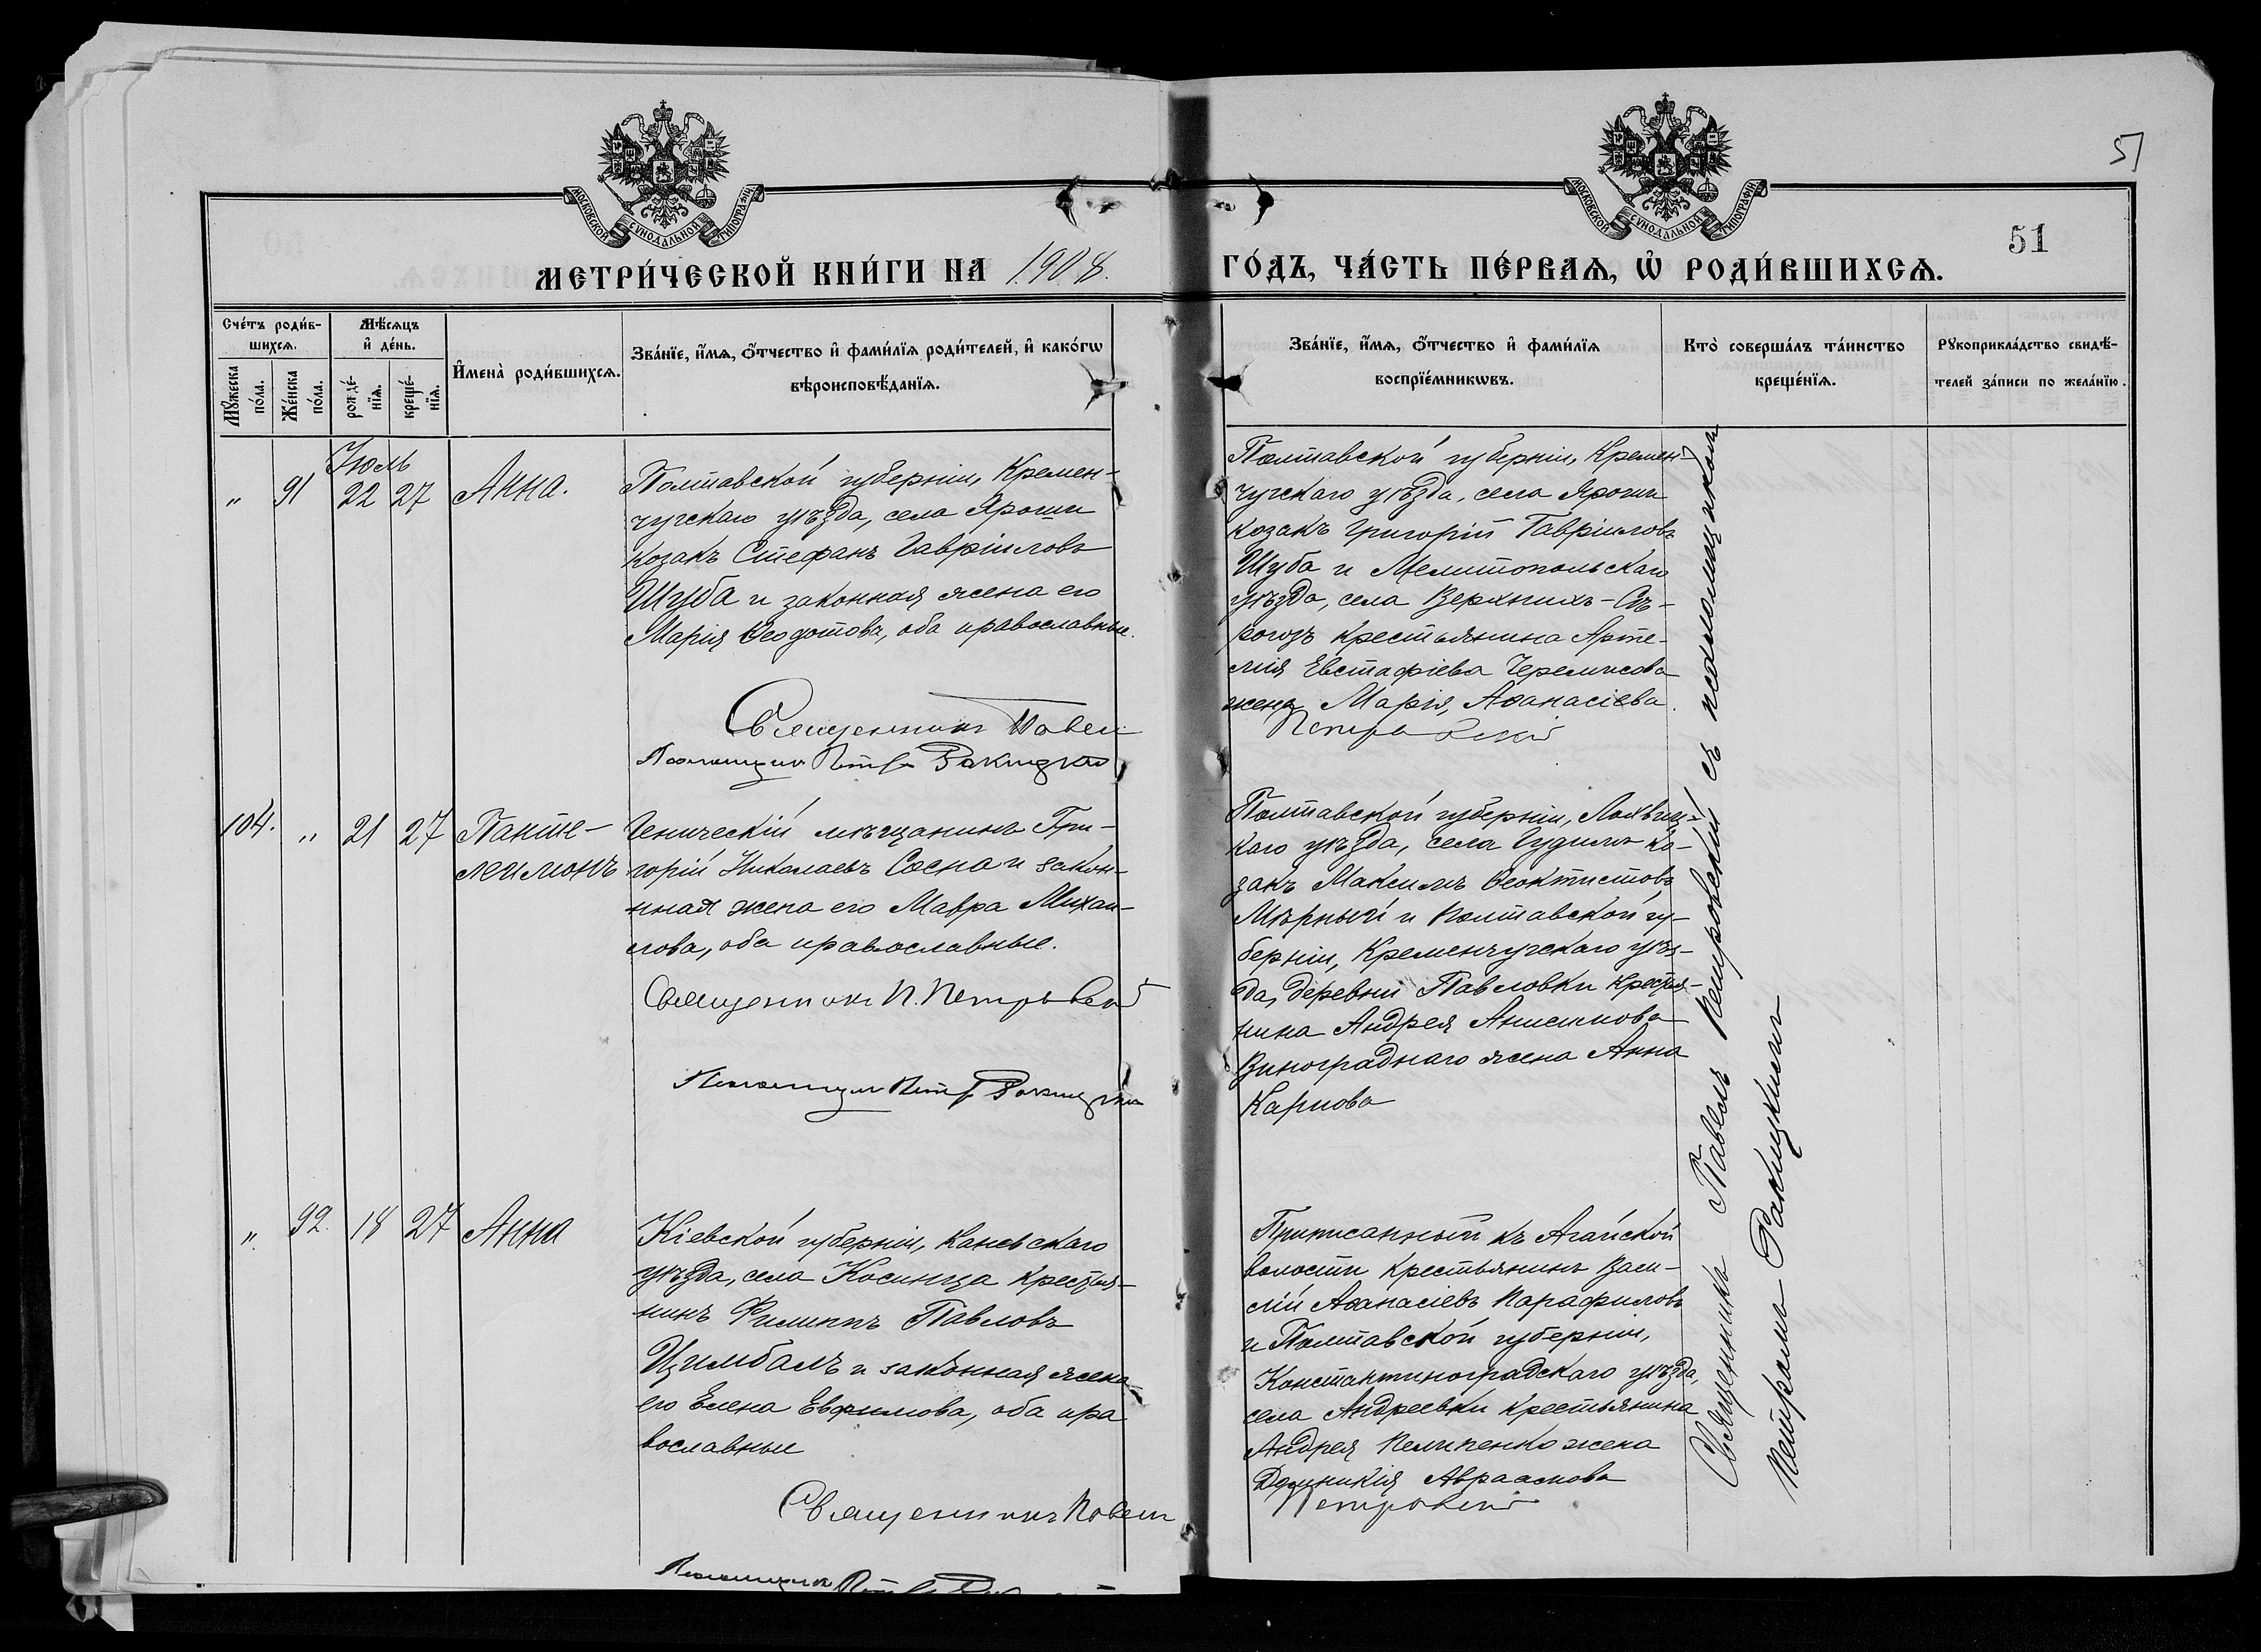 51
51
МОСКОВСКОЙ СѴНОДАЛЬНОЙ ТИПОГРАФІИ
МОСКОВСКОЙ СѴНОДАЛЬНОЙ ТИПОГРАФІИ
МЕТРИ́ЧЕСКОЙ КНИ́ГИ НА 1908.
ГО́ДЪ, ЧА́СТЬ ПЕ́РВАѦ, Ѽ РОДИ́ВШИХСѦ.
Сче́тъ роди́в-
шихсѧ.
Мꙋ́жеска по́ла.
Же́нска по́ла.
Мѣ́сѧцъ
и҆ де́нь.
рожде́-
нїѧ.
креще́-
нїѧ.
И҆мена̀ роди́вшихсѧ.
Зва́нїе, и҆́мѧ, ѻ҆́тчество и҆ фами́лїѧ роди́телей, и҆ како́гѡ
вѣроисповѣ́данїѧ.
Зва́нїе, и҆́мѧ, ѻ҆́тчество и҆ фами́лїѧ
воспрїе́мникѡвъ.
Кто̀ соверша́лъ та́инство
креще́нїѧ.
Рꙋкоприкла́дство свидѣ́-
телей за́писи по жела́нїю.
Іюль
„ 91 22 27 Анна.
Полтавской губерніи, Кремен-
чугскаго уѣзда, села Яроши
козакъ Стефанъ Гавріиловъ
Шуба и законная жена его
Марія Ѳеодотова, оба православные.
Священникъ Павелъ
Псаломщикъ Петръ Ракицкій
Полтавской губерніи, Кремен-
чугскаго уѣзда, села Яроши
козакъ Григорій Гавріиловъ
Шуба и Мелитопольскаго
уѣзда, села Верхнихъ-Сѣ-
рогозъ крестьянина Арте-
мія Евстафіева Черемисова
жена Марія Аѳанасіева.
Петровскій
104. „ 21 27 Панте-
леимонъ
Геническій мѣщанинъ Гри-
горій Николаевъ Сосна и закон-
ная жена его Мавра Михаи-
лова, оба православные.
Священникъ П. Петровскій
Псаломщикъ Петръ Ракицкій
Полтавской губерніи, Лохвиц-
каго уѣзда, села Гудимъ ко-
закъ Максимъ Ѳеоктистовъ
Мѣрный и Полтавской гу-
берніи, Кременчугскаго уѣз-
да, деревни Павловки крестья-
нина Андрея Анисимова
Винограднаго жена Анна
Карпова
„ 92. 18 27 Анна
Кіевской губерніи, Каневскаго
уѣзда, села Косинца крестья-
нинъ Филиппъ Павловъ
Цимбалъ и законная жена
его Елена Евфимова, оба пра
вославные
Священникъ Павелъ
Псаломщикъ Петръ
Приписанный къ Агайской
волости крестьянинъ Васи-
лій Аѳанасіевъ Парафиловъ
и Полтавской губерніи,
Константиноградскаго уѣзда,
села Андреевки крестьянина
Андрея Пелипенко жена
Домникія Авраамова
Петровскій
Священникъ Павелъ Петровскій съ псаломщикомъ
Петромъ Ракицкимъ